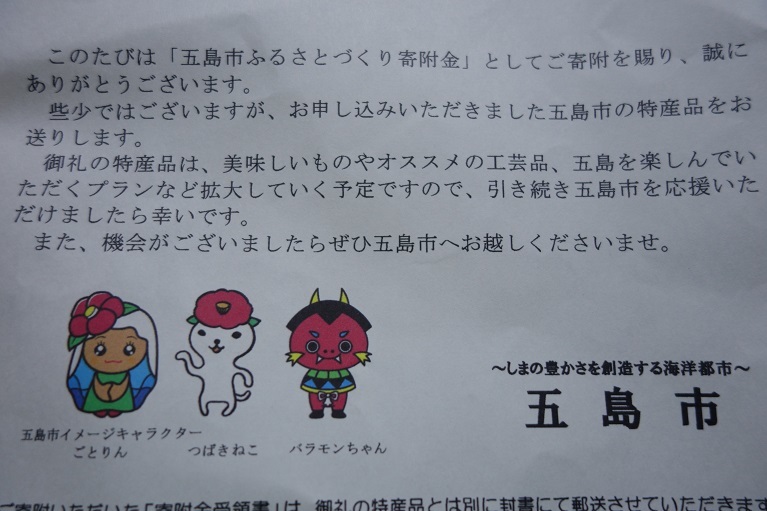 このたびは「五島市ふるさとづくり寄附金」としてご寄附を賜り、誠に
ありがとうございます。
些少ではございますが、お申し込みいただきました五島市の特産品をお
送りします。
御礼の特産品は、美味しいものやオススメの工芸品、五島を楽しんでい
ただくプランなど拡大していく予定ですので、引き続き五島市を応援いた
だけましたら幸いです。
また、機会がございましたらぜひ五島市へお越しくださいませ。
～しまの豊かさを創造する海洋都市～
五島市
五島市イメージキャラクター
ごとりん
つばきねこ
バラモンちゃん
ご寄附いただいた「寄附金受領書」は、御礼の特産品とは別に封書にて郵送させていただきます